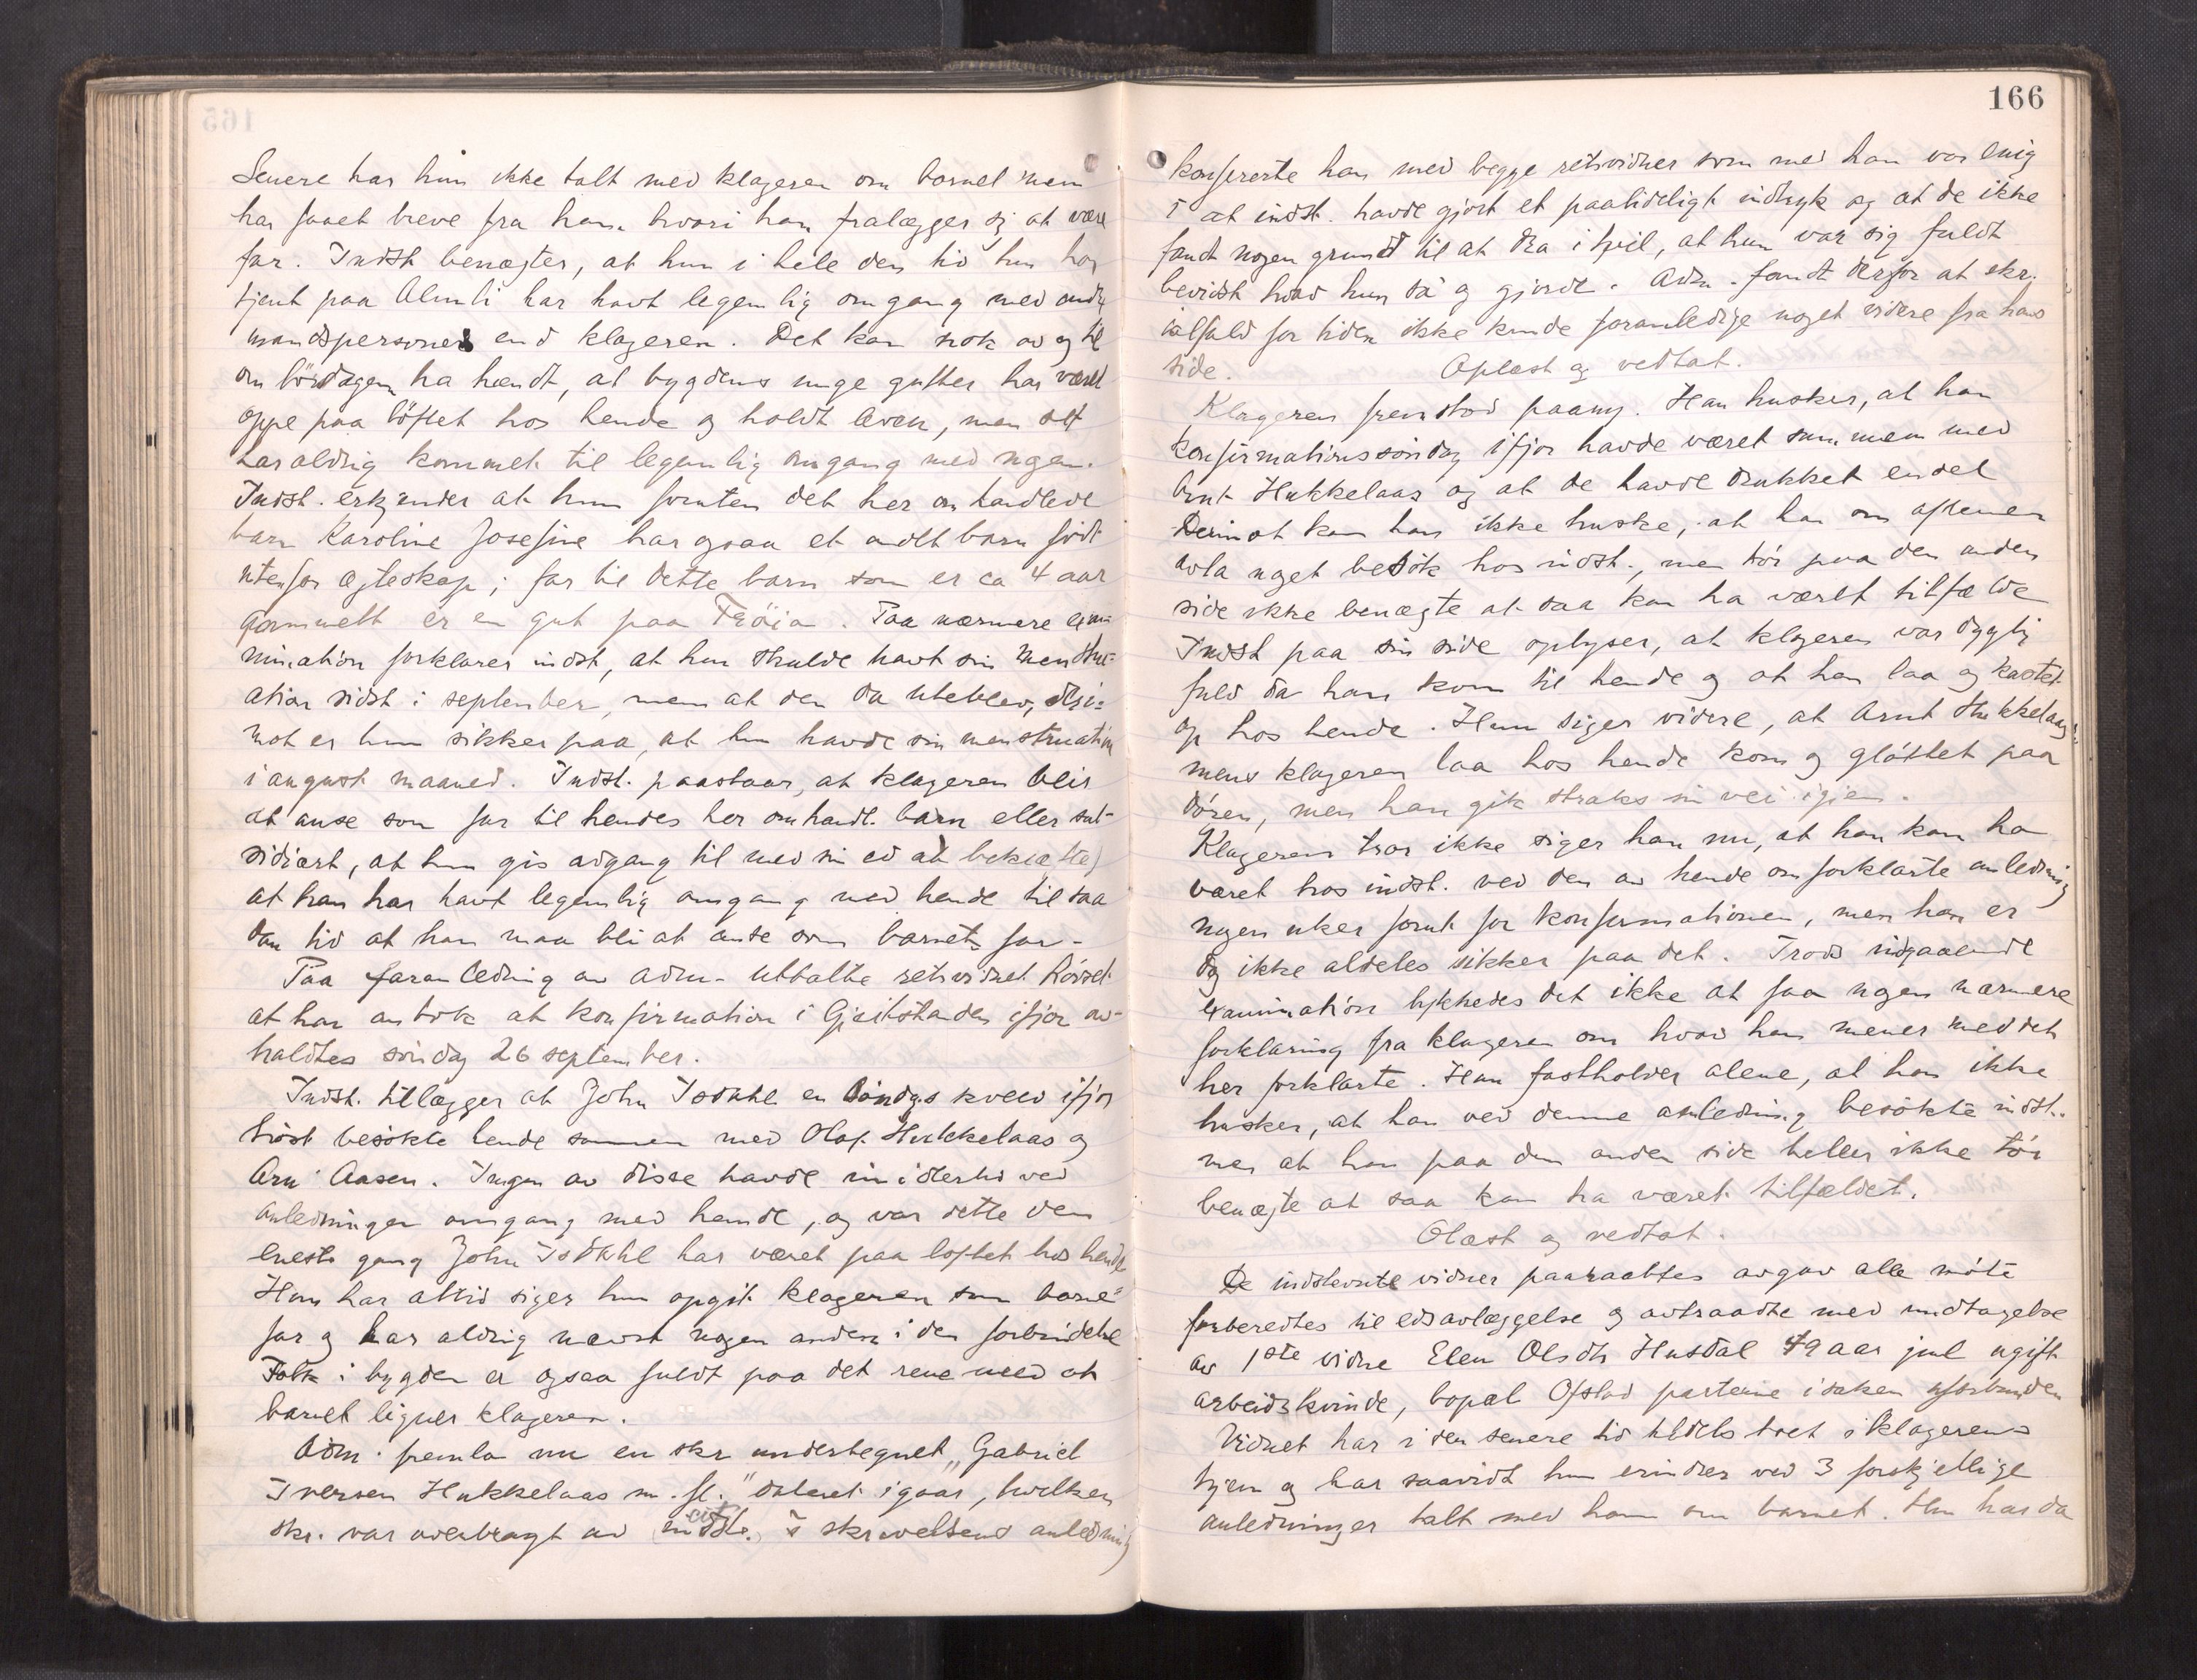 Senere har hun ikke talt med klageren om barnet men
har faaet breve fra ham hvori han fralægger sig at være
far. Indst benægter, at hun i hele den tid hun har
tjent paa Almli har havt legemlig omgang med andre
mandspersoner end klageren. Det kan nok av og til
om lördagen ha hændt, at bygdens unge gutter har været
oppe paa löftet hos hende og holdt leven, men det
har aldrig kommet til legemlig omgang med nogen.
Indst. erkjender at hun foruten det her omhandlede
barn Karoline Josefine har ogsaa et andet barn födt
utenfor egteskap; far til dette barn som er ca 4 aar
gammelt er en gut paa Fröia. Paa nærmere exa-
mination forklarer indst, at hun skulde havt sin menstru-
ation sidst i september, men at den da uteblev, deri-
mot er hun sikker paa, at hun havde sin menstruation
i august maaned. Indst. paastaar, at klageren blir
at anse som far til hendes her omhandl. barn eller sub-
sidiært, at hun gis adgang til med sin ed at bekræfte,
at han har havt legemlig omgang med hende til saa
dan tid at han maa bli at anse som barnets far -
Paa foranledning av adm. uttalte retsvidnet
at han antok at konfirmation i Gjeitstanden ifjor av-
holdtes söndag 26 september.
Indst. tillægger at John Isdahl en kveld ifjor
höst besökte hende sammen med Olaf Hukkelaas og
Arn Aasen. Ingen av disse havde imidlertid ved
anledningen omgang med hende, og var dette den
eneste gang John Isdahl har været paa loftet hos hende
Hun har altid siger hun opgit klageren som barne-
far og har aldrig nævnt nogen anden i den forbindelse
Folk i bygden er ogsaa fuldt paa det rene med at
barnet ligner klageren.
Adm. fremla nu en skr. undertegnet "Gabriel
Iversen Hukkelaas m. fl." dateret igaar, hvilken
skr. var overbragt av indst. I skrivelsens anledning
166
konfererte han med begge retsvidner som med ham var enig
i at indst. havde gjort et paalideligt indtryk og at de ikke
fandt nogen grund til at dra i tvil, at hun var sig fuldt
bevidst hvad hun sa og gjorde. Adm. fandt derfor at skr.
ialfald for tiden ikke kunde foranledige noget videre fra hans
side. Oplæst og vedtat.
Klageren fremstod paany. Han husker, at han
konfirmationssöndag ifjor havde været sammen med
Arnt Hukkelaas og at de havde drukket endel
Derimot kan han ikke huske, at han om aftenen
avla noget besök hos indst., men tör paa den anden
side ikke benægte at saa kan ha været tilfælde
Indst paa sin side oplyser, at klageren var dygtig
fuld da han kom til hende og at han laa og kastet
op hos hende. Hun siger videre, at Arnt Hukkelaas
mens klageren laa hos hende kom og glöttet paa
dören, men han gik straks sin vei igjen.
Klageren tror ikke siger han nu, at han kan ha
været hos indst. ved den av hende omforklarte anledning
nogen uker forut for konfirmationen, men han er
dog ikke aldeles sikker paa det. Trods indgaaende
examination lykkedes det ikke at faa nogen nærmere
forklaring fra klageren om hvad han mener med det
her forklarte. Han fastholder alene, at han ikke
husker, at han ved denne anledning besökte indst.
men at han paa den anden side heller ikke tör
benægte at saa kan ha været tilfældet.
Olæst og vedtat.
De indstevnte vidner paaraabtes avgav alle möte
forberedtes til edsavlæggelse og avtraadte med undtagelse
av 1ste vidne Elen Olsdtr Husdal 49 aar jul ugift
arbeidskvinde, bopæl Ofstad parterne i saken uforbunden
Vidnet har i den senere tid tildels boet i klagerens
hjem og har saavidt hun erindrer ved 3 forskjellige
anledninger talt med ham om barnet. Hun har da